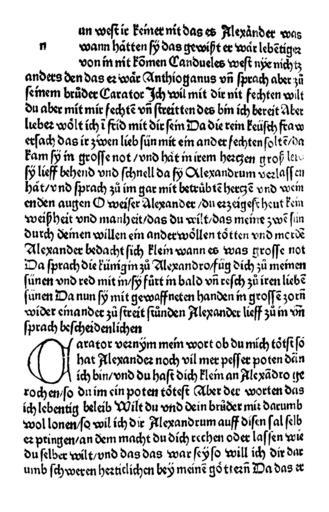 un west ir keiner nit das es Alexander was
n wann hätten sy das gewißt er wår lebentiger
von in nit kõmen Candueles west nye nichtz
anders den das er wår Anthioganus vñ sprach aber zů
seinem brůder Carator Jch wil mit dir nit fechten wilt
du aber mit mir fechtē vñ streitten des bin ich bereit Aber
lieber wölt ich ī frid mit dir sein Da die rein keüsch fraw
ersach das ir zwen lieb sün mit ein ander fechten soltē/da
kam sy in grosse not/vnd hat in irem hertzen groß
sy lieff behend vnd schnell da sy Alexandrum verlassen
hat/vnd sprach zů im gar mit betrübtē hertzē vnd wein
enden augen O weiser Alexander/du erzeigest heut kein
weißheit vnd manheit/das du wilt/das meine zwē sün
durch deinen willen ein anderwöllen tötten vnd mordē
Alexander bedacht sich klein wann es was grosse not
Da sprach die künigin zů Alexandro/füg dich zů meinen
sünen vnd red mit in/sy fürt in bald vñ resch zů iren liebē
sünen Da nun sy mit gewaffneten handen in grossē zorñ
wider einander zů streit stůnden Alexander lieff zů in vñ
sprach bescheidenlichen
Carator vernym mein wort ob du mich tötst so
hat Alexander noch vil mer pesser poten dañ
ich bin/vnd du hast dich klein an Alexãdro ge
rochen/so du im ein poten tötest Aber der worten das
ich lebentig beleib Wilt du vnd dein brůder mit darumb
wol lonen/so wil ich dir Alexandrum auff disen sal selb
er pringen/an dem macht du dich rechen oder lassen wie
du selber wilt/vnd das das war sey so will ich dir dar
umb schweren herticlichen bey meinē göttern Da das er